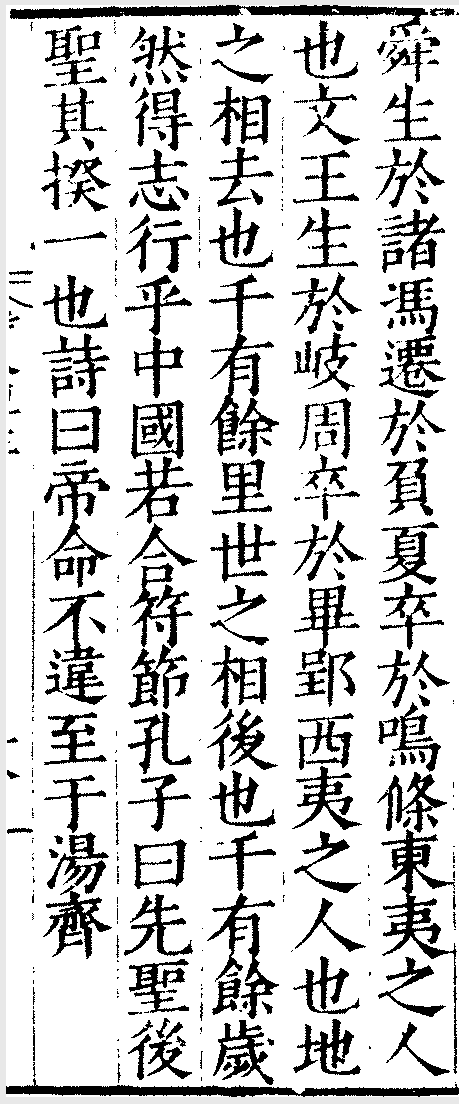 舜生於諸馮遷於負夏卒於鳴條東夷之人
也文王生於岐周卒於畢郢西夷之人也地
之相去也千有餘里世之相後也千有餘歲
然得志行乎中國若合符節孔子曰先聖後
聖其揆一也詩曰帝命不違至于湯齊